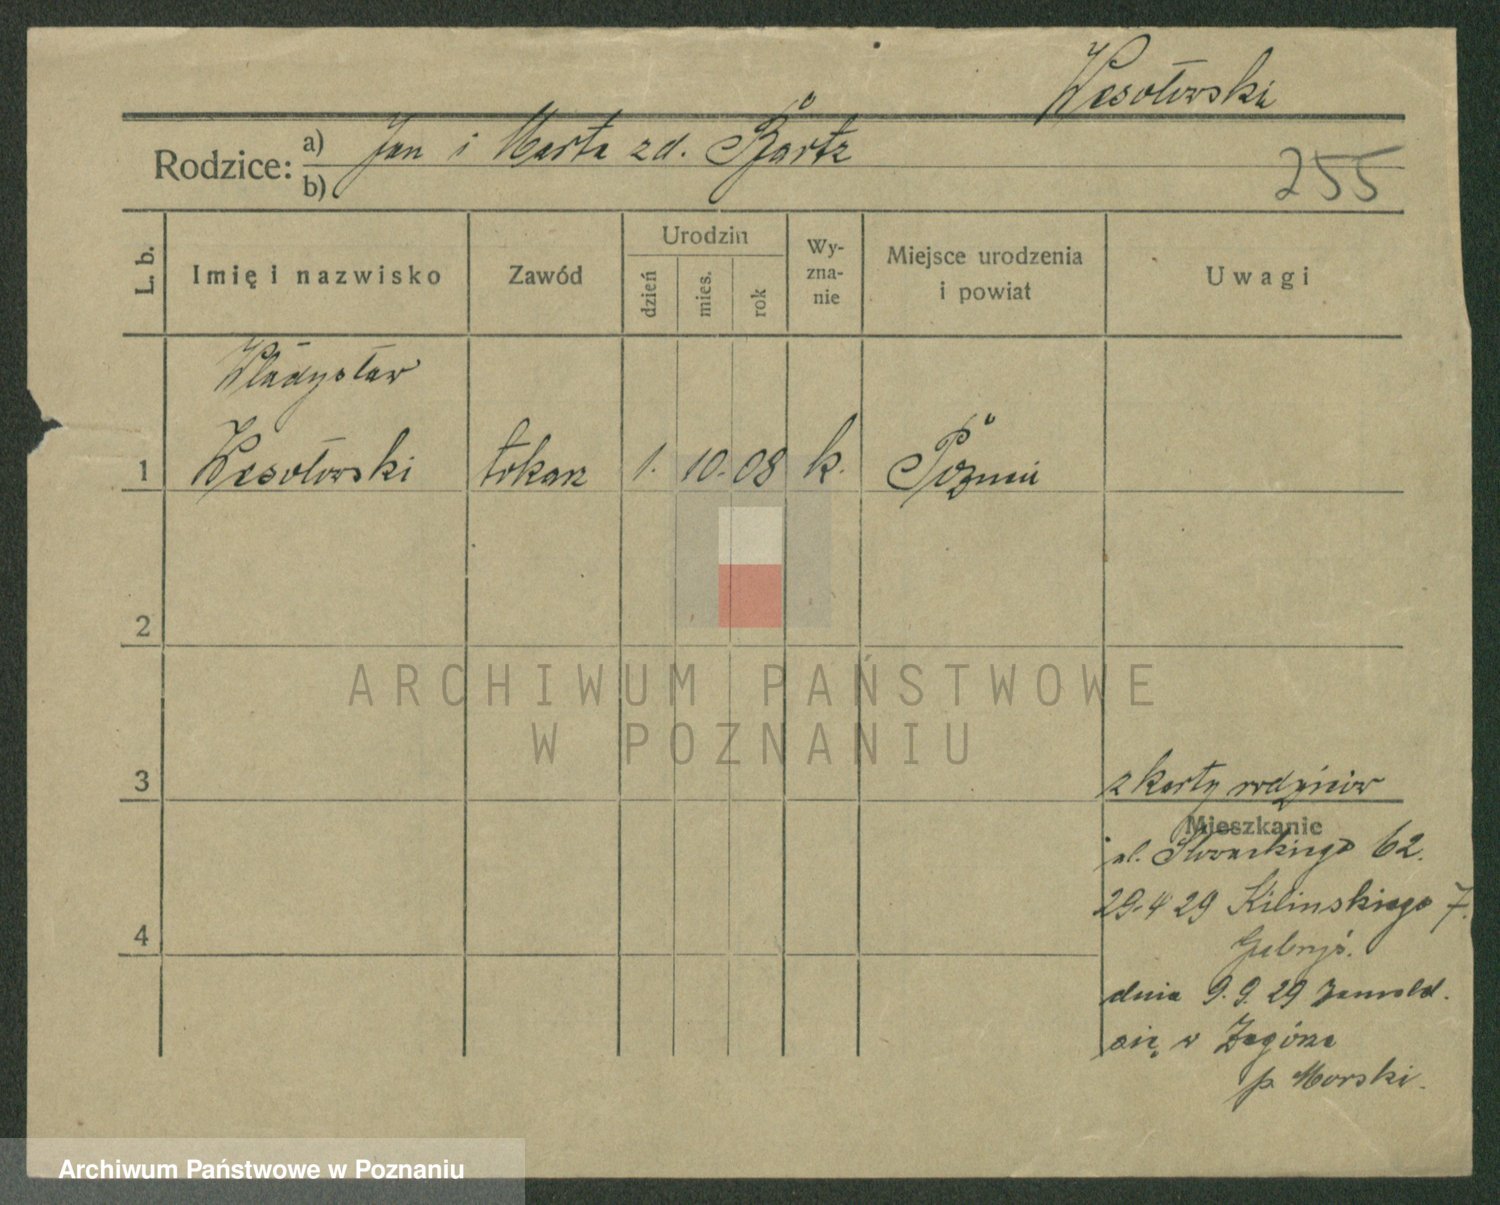 Wesołowski
Rodzice: a) Jan i Marta zd. Bartz
b)
255
L. b.
Imię i nazwisko
Zawód
Urodzin
dzień
mies.
rok
Wy-
zna-
nie
Miejsce urodzenia
i powiat
Uwagi
Władysław
1 Wesołowski tokarz 1. 10. 08 k. Poznań
2
ARCHIWUM PAŃSTWOWE
W POZNANIU
3
z karty rodziców
Mieszkanie
ul. Słowackiego 62.
29.4 29 Kilinskiego 7.
4
dnia 9.9.29 zameld.
się w Zagórze
p. Morski.
Archiwum Państwowe w Poznaniu